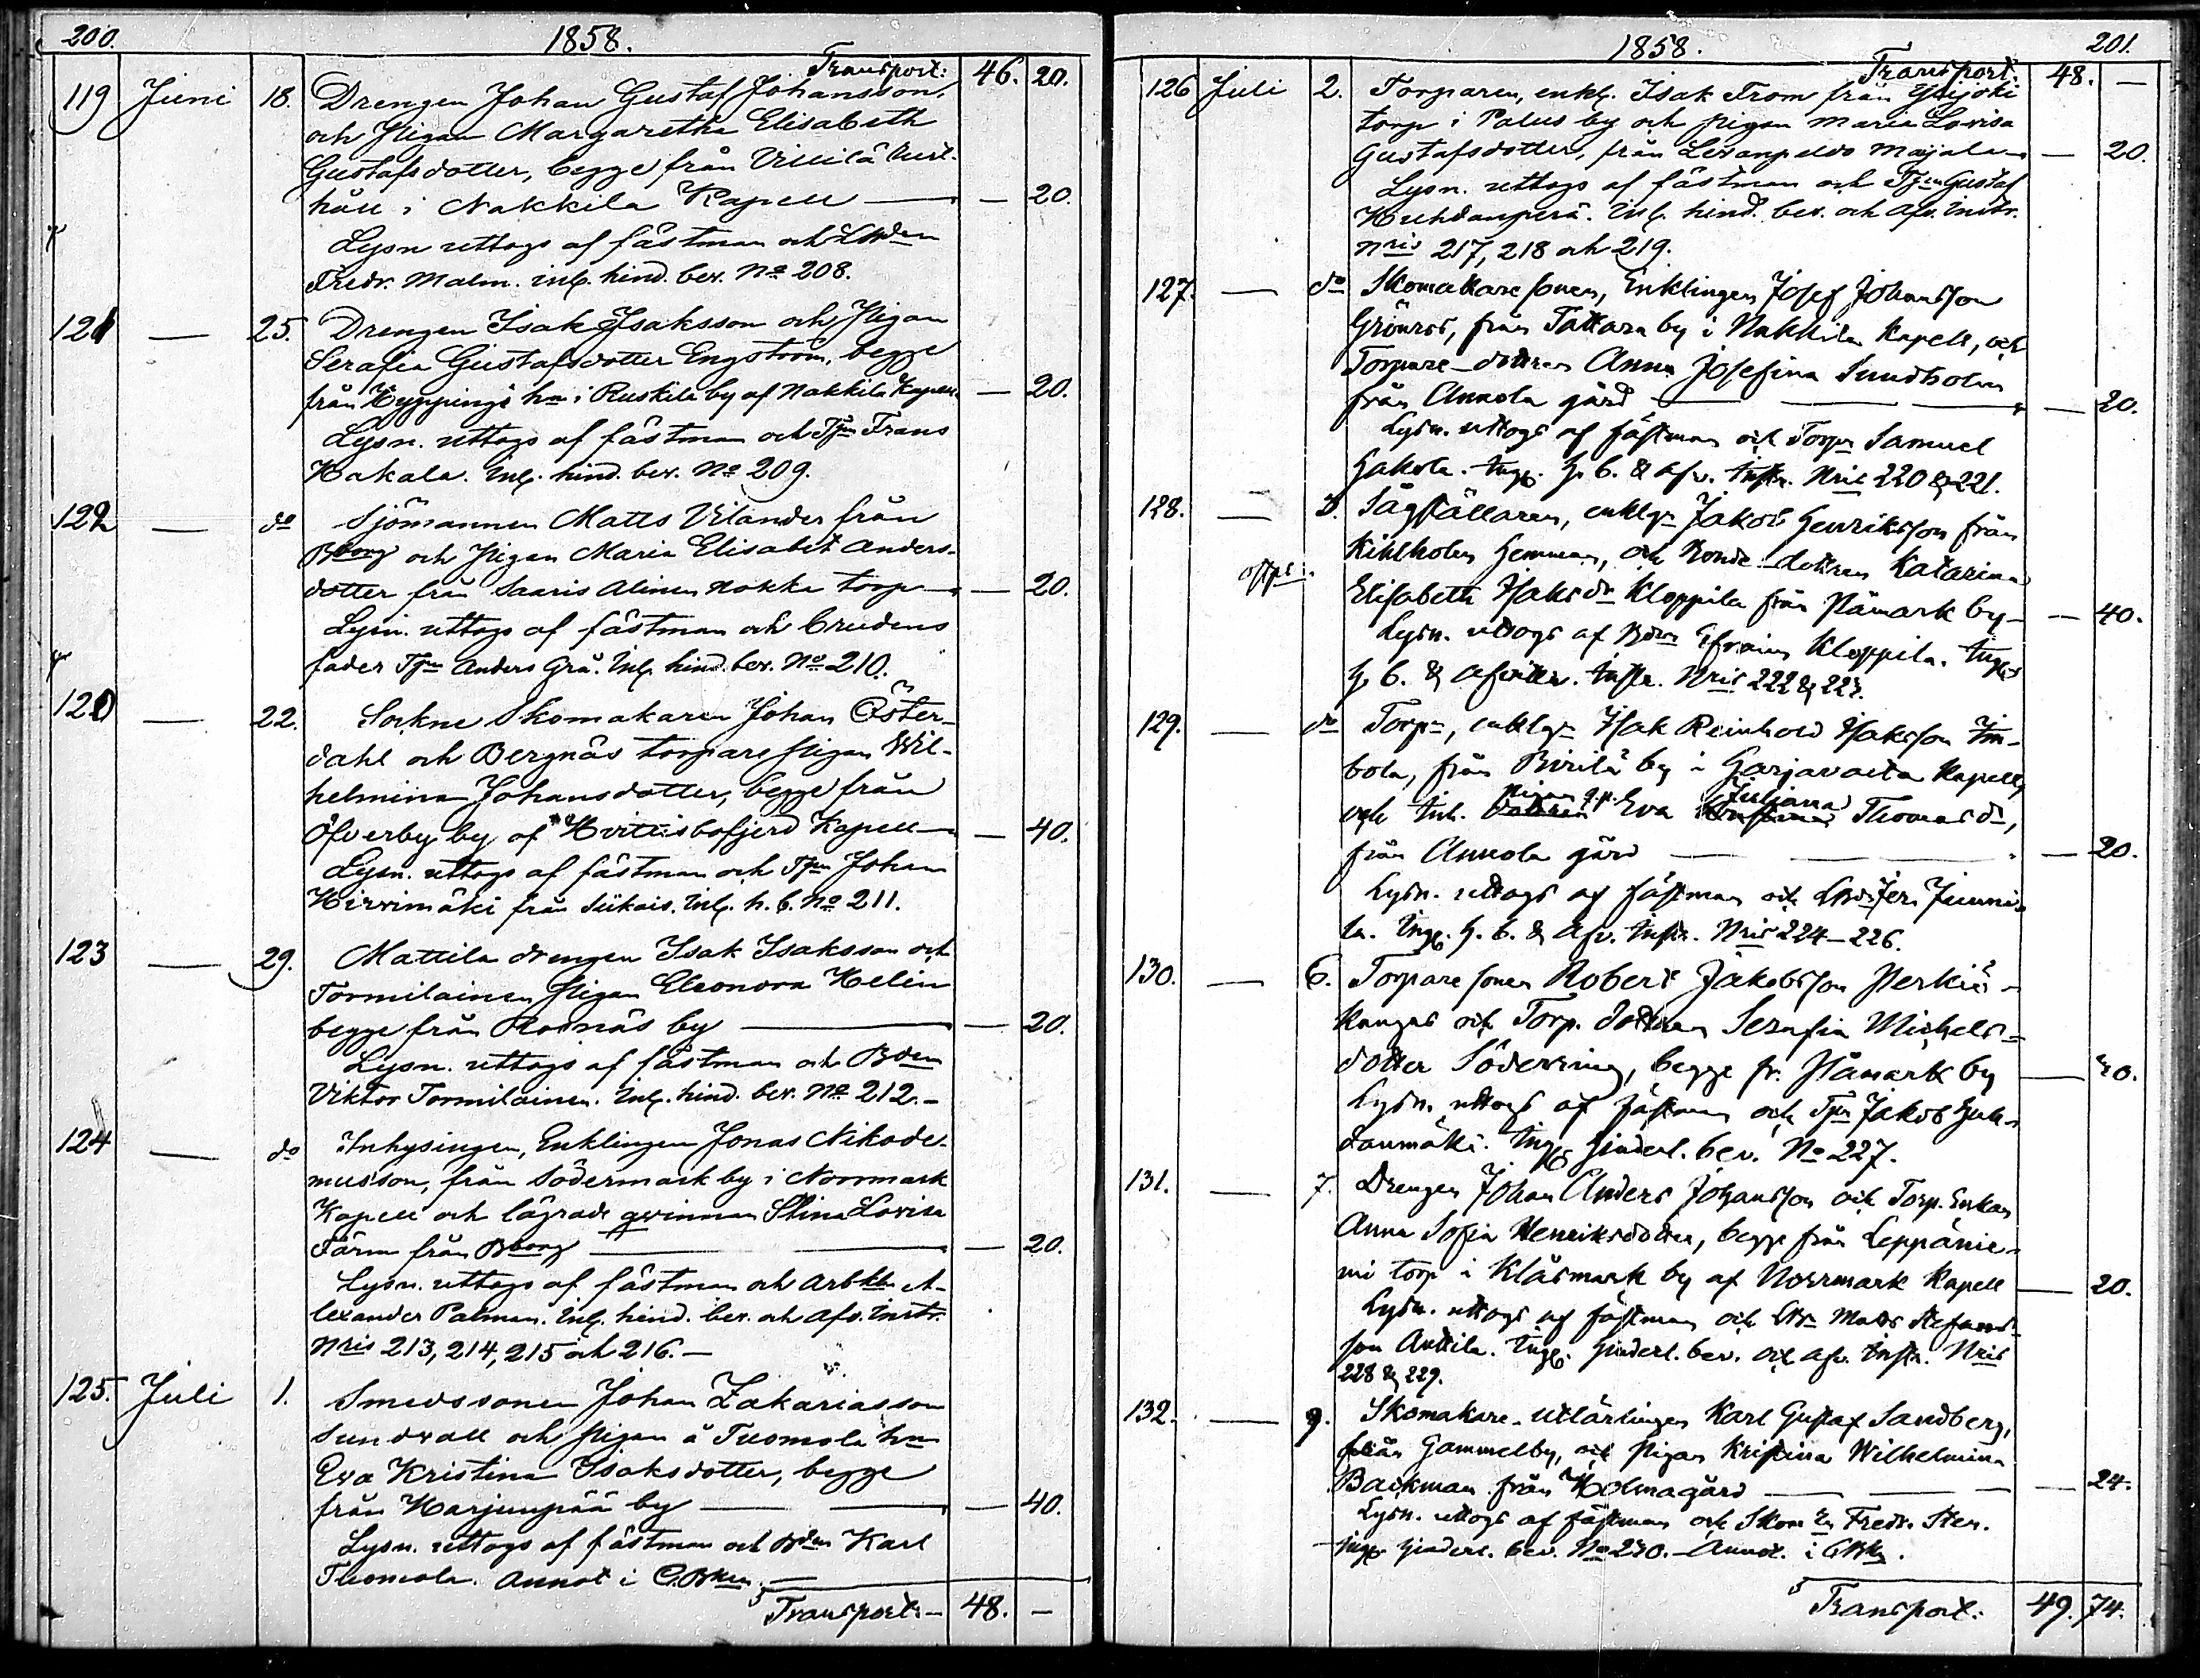 200. 1858.
Transport: 46. 20.
119 Juni 18. Drengen Johan Gustaf Johansson,
och pigan Margaretha Elisabeth
Gustafsdotter, begge från Villilä
håll i Nakkila Kapell — — 20.
Lysn uttogs af fästman och
Fredr. Malm. inl. hind. bev. No 208.
121 — 25. Drengen Isak Isaksson och pigan
Serafia Gustafsdotter Engström, begge
från Hyppingi hn i Ruskila by af Nakkila Kapell — 20.
Lysn. uttogs af fästman och Tpn Frans
Hakala. Inl. hind. bev. No 209.
122 — do Sjömannen Matts Vilander från
Bborg och pigan Maria Elisabet Anders-
dotter från Saaris Alinen Nokka torp — — 20.
Lysn. uttogs af fästman och brudens
fader Tpn Anders Grå. Inl. hind. bev. No 210.
120 — 22. Sockne Skomakaren Johan Öster-
dahl och Bergnäs torpare pigan Wil-
helmina Johansdotter, begge från
Öfverby by af Hvittisbofjerd Kapell — — 40.
Lysn. uttogs af fästman och Tpn Johan
Hirvimäki från Siikais. Inl. h. b. No 211.
123 — 29. Mattila drengen Isak Isaksson och
Tormilainen pigan Eleonora Helin
begge från Rosnäs by — — 20.
Lysn. uttogs af fästman och Bden
Viktor Tormilainen. Inl. hind. bev. No 212.-
124 — do Inhysingen, Enklingen Jonas Nikode-
musson, från Södermark by i Norrmark
Kapell och lägrade qvinnan Stina Lovisa
Färm från Bborg — — 20.
Lysn. uttogs af fästman och Arbkln A-
lexander Palman. Inl. hind. bev. och Afv. Instr.
Nris 213, 214, 215 och 216.—
125. Juli 1. Smedssonen Johan Zakariasson
Sundvall och pigan å Tuomola hn
Eva Kristina Isaksdotter, begge
från Harjunpää by — — 40.
Lysn. uttogs af fästman och Bden Karl
Tuomola. Annot i C.Bken.—
Transport:— 48. —
1858. 201.
Transport: 48. —
126 Juli 2. Torparen, enkl. Isak From från
torp i Palus by och pigan Maria Lovisa
Gustafsdotter, från Levanpelto Majala — — 20.
Lysn. uttogs af fästman och Tpn Gustaf
Huhdanperä. Inl. hind. bev. och Afv. Instr.
Nris 217, 218 och 219.
127. — do Skomakare sonen, Enklingen Josef Johansson
Grönros, från Tattara by i Nakkila Kapell, och
Torpare-dottren Anna Josefina Sundholm
från Annola gård — — 20.
Lysn. uttogs af fästman och Torpn Samuel
Hakola. Ingl. H. b. & afv. Instr. Nris 220 & 221.
128. — 3. Sågställaren, enklgn Jakob Henriksson från
Kihlholm Hemman, och Bonde-dottren Katarina
Elisabeth Isaksdr Kloppila från Påmark by — — 40.
Lysn. uttogs af Bden Efraim Kloppila. Ingl.
H. b. & Afvittr. Instr. Nris 222 & 223.
129. — do Torpn, enklgn Isak Reinhold Isaksson Im-
bola, från Pirilä by i Harjavalta Kapell,
och Inh. Pigan Eva Juliana Thomasdr,
från Annola gård — — 20.
Lysn. uttogs af fästman och Junni-
la. Ingl. H. b. & Afv. Instr. Nris 224–226.
130. — 6. Torpare sonen Robert Jakobsson Perkiö-
kangas och Torp. dottren Serafia Michels-
dotter Söderving, begge fr. Påmark by — 40.
Lysn. uttogs af fästman och Tpn Jakob Huh-
danmäki. Ingl. Hinderl. bev. No 227.
131. — 7. Drengen Johan Anders Johansson och Torp. Enkan
Anna Sofia Henriksdotter, begge från Leppänie-
mi torp i Kläsmark by af Norrmark Kapell — 20.
Lysn. uttogs af fästman och Matts Stefans-
son Anttila. Ingl. Hinderl. bev. och afv. Instr. Nris
228 & 229.
132. — 9. Skomakare-utlärlingen Karl Gustaf Sandberg,
från Gammelby, och pigan Kristina Wilhelmina
Backman från Holmagård — — 24.
Lysn. uttogs af fästman och Skom En Fredr. Sten.
Ingl. Hinderl. bev. No 230.— Annot. i CBkn.
Transport: 49. 74.